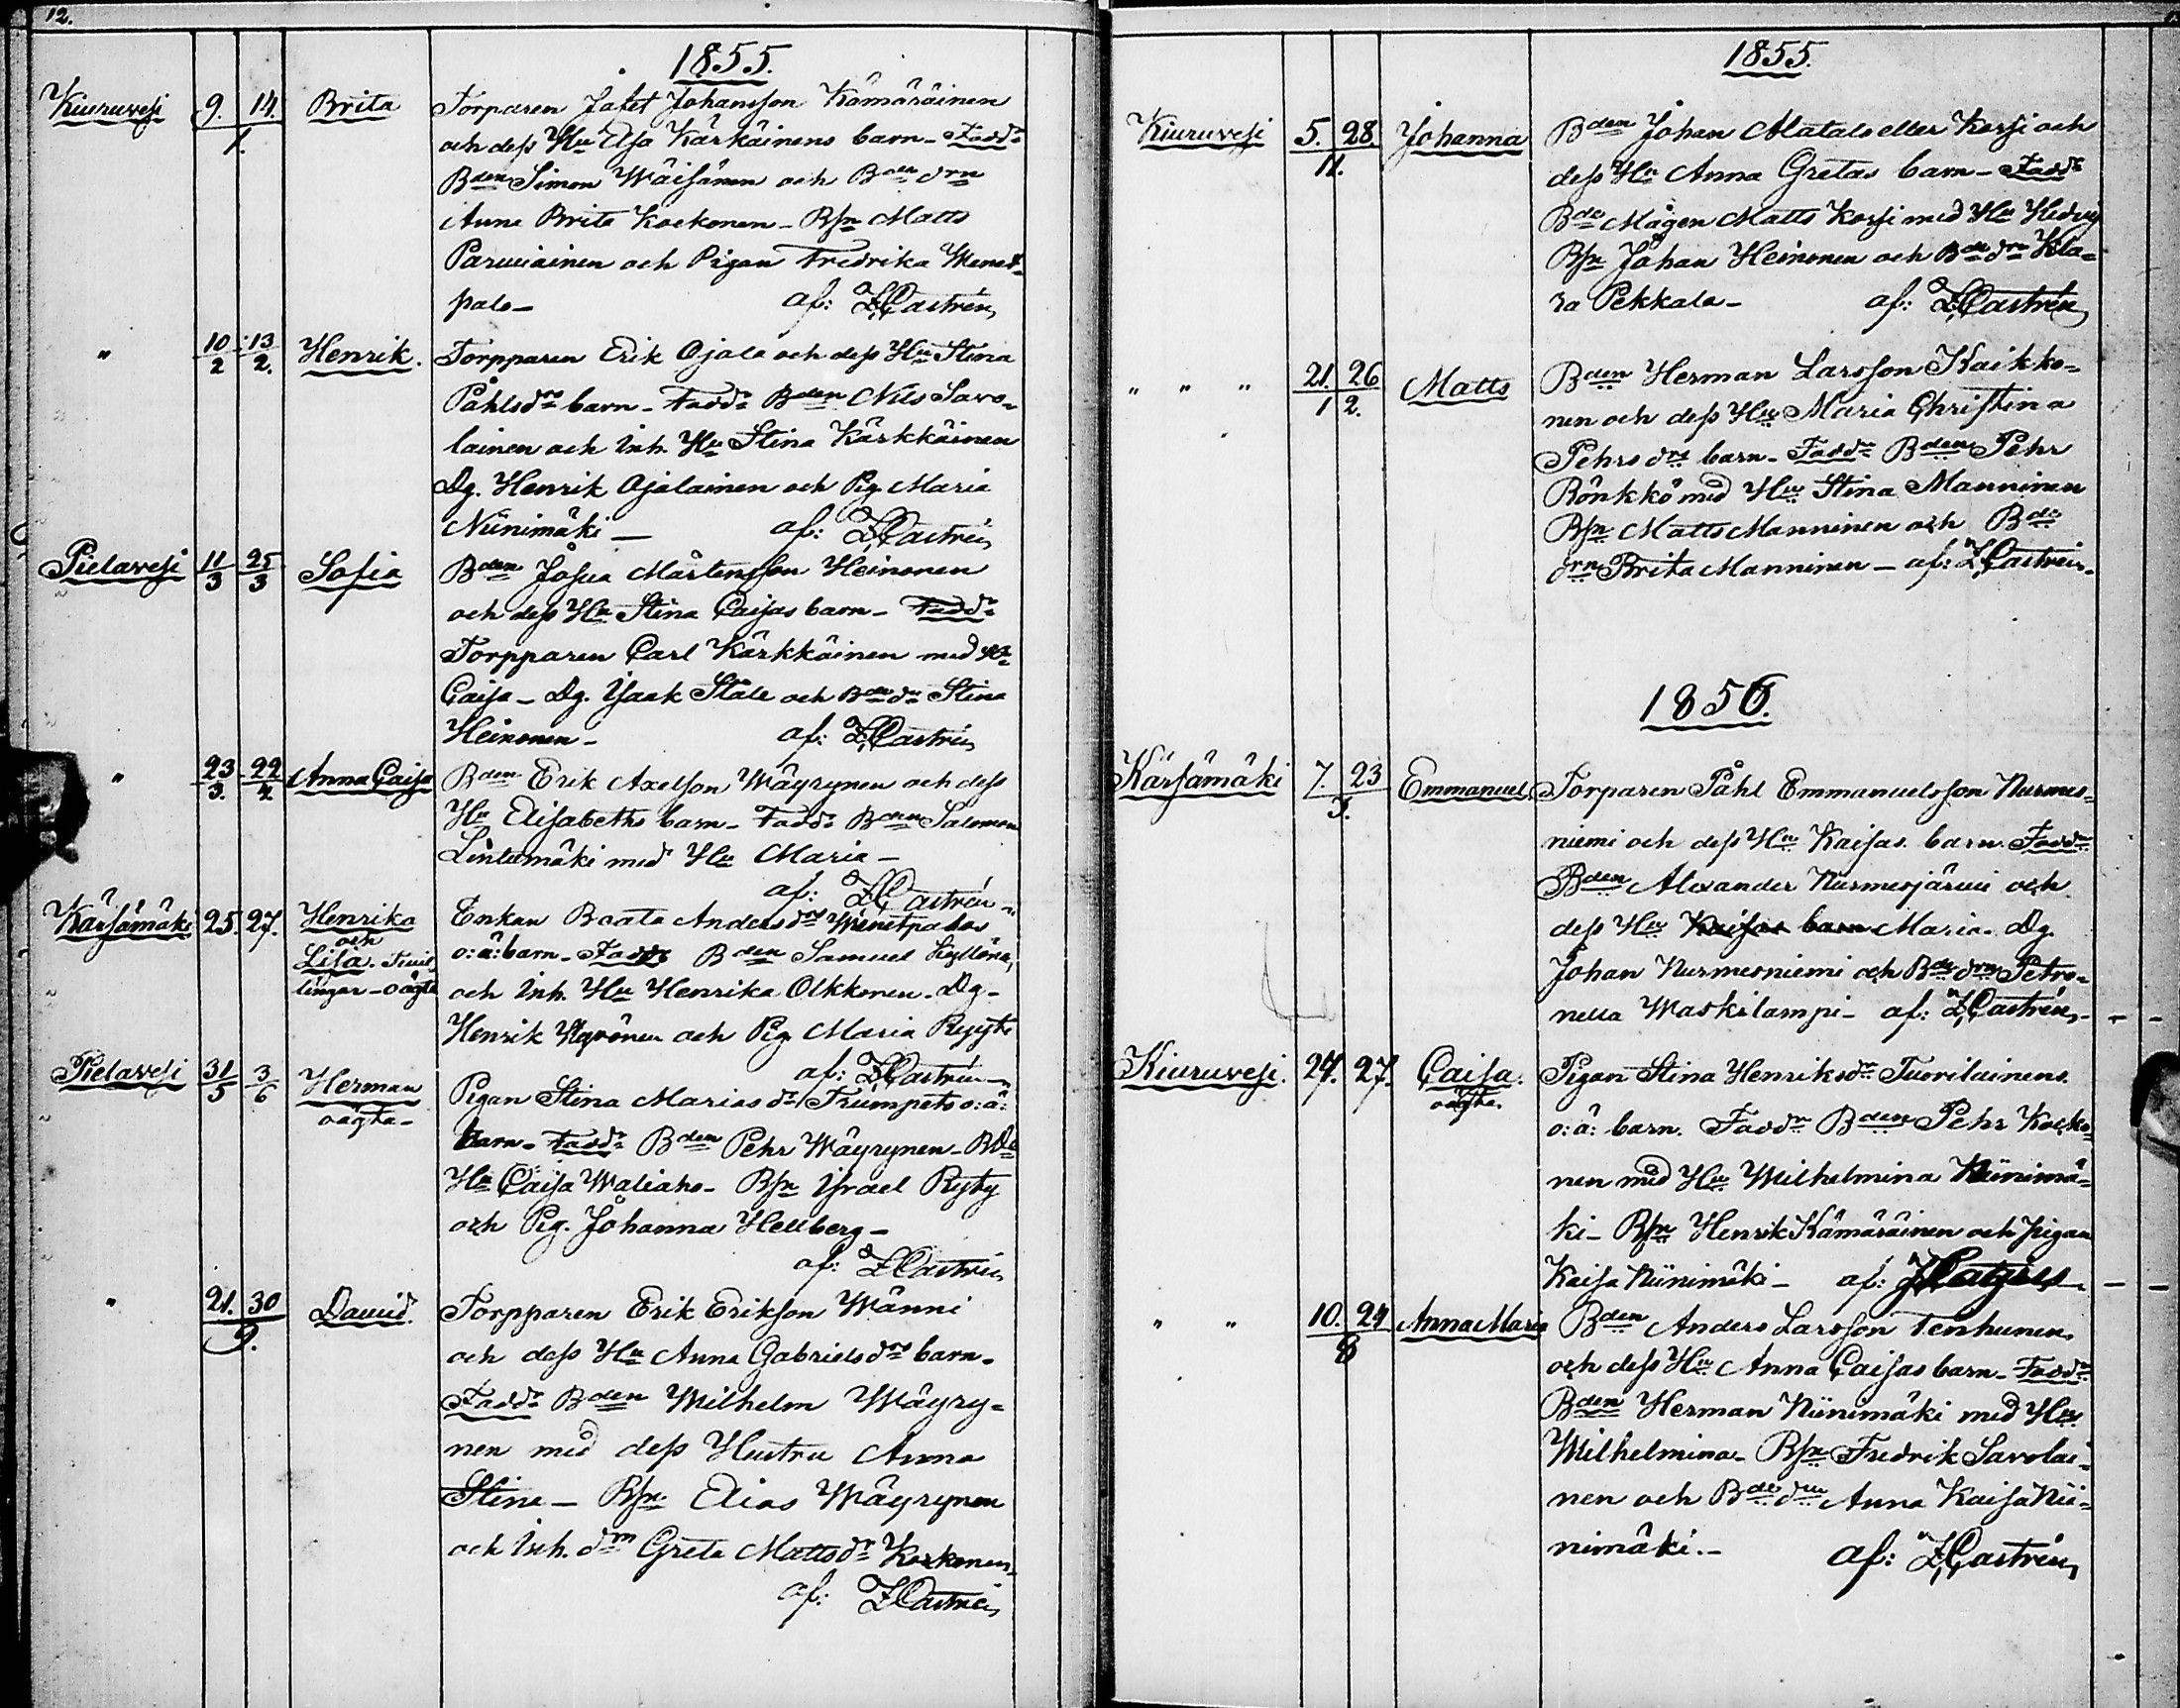 12.
1855.
Kiuruvesi 9. 14. Brita Torparen Jafet Johansson Kämäräinen
1. och dess Hu Elsa Kärkäinens barn - Fadd:
Bden Simon Wäisänen och Bden drn
Anna Brita Koekonen - Bsn Matts
Parviainen och Pigan Fredrika Wenet-
palo - af: ZCastrén
" 10/2 13/2. Henrik. Torpparen Erik Ojala och dess Hu Stina
Påhlsdrs barn - Fadd: Bden Nils Savo-
lainen och Inh. Hu Stina Kärkkäinen
Dg. Henrik Ojalainen och Pig. Maria
Niinimäki - af: ZCastrén
Pielavesi 11/3 25/3 Sofia Bden Josua Mårtensson Heinonen
och dess Hu Stina Caisas barn - Fadd:
Torpparen Carl Kärkkäinen med Hu
Caisa - Dg. Isaak Ståle och Bde dr Stina
Heinonen - af: ZCastrén
" 23/3. 22/4 Anna Caisa Bden Erik Axelsson Wäyrynen och dess
Hu Elisabeths barn - Fadd: Bden Salomon
Lintumäki med Hu Maria -
af: ZCastrén -
Kärsämäki 25. 27. Henrika Enkan Beata Andersdrs Wenetpalos
och o: ä: barn - Fadd: Bden Samuel
Lisa. Tvil- och Inh. Hu Henrika Olkkonen - Dg -
lingar - oägta Henrik och Pig. Maria
af: ZCastrén -
Pielavesi 31/5 3/6 Herman Pigan Stina Mariasdr Trumpets o: ä:
oägta - barn - Fadd: Bden Pehr Wäyrynen - Bde
Hu Caisa Waliaho - Bsn Israel Ryty
och Pig. Johanna Hellberg -
af: ZCastrén
" 21. 30 David. Torpparen Erik Eriksson Wänni
9. och dess Hu Anna Gabrielsdrs barn -
Fadd: Bden Wilhelm Wäyry-
nen med dess Hustru Anna
Stina - Bsn Elias Wäyrynen
och Inh. drn Greta Mattsdr Koskonen,
af: ZCastrén
1855.
Kiuruvesi 5. 28. Johanna Bden Johan Matala eller Korsi och
11. dess Hu Anna Gretas barn - Fadd:
Bde Mågen Matts Korsi med Hu Hedvig
Bsn Johan Heinonen och Bde drn Kla-
ra Pekkala - af: ZCastrén
" " " 21. 26 Matts Bden Herman Larsson Kaikko-
12. nen och dess Hu Maria Christina
Pehrsdrs barn - Fadd: Bden Pehr
Rönkkö med Hu Stina Manninen
Bsn Matts Manninen och Bde
drn Brita Manninen - af: ZCastrén -
1856.
Kärsämäki 7. 23 Emmanuel. Torparen Påhl Emmanuelsson Nurmes-
3. niemi och dess Hu Kaisas barn. Fadd:
Bden Alexander Nurmesjärvi och
dess Hu Kaisas barn Maria - Dg.
Johan Nurmesniemi och Bde drn Petro-
nella Waskilampi - af: ZCastrén -
Kiuruvesi. 24. 27. Caisa. Pigan Stina Henriksdr Tuorilainens
oägta. o: ä: barn. Fadd: Bden Pehr Koeko-
nen med Hu Wilhelmina Niinimä-
ki - Bsn Henrik Kämäräinen och pigan
Kaisa Niinimäki - af:
" " 10. 24 Anna Maria Bden Anders Larsson Tenhunen
8 och dess Hu Anna Caisas barn - Fadd:
Bden Herman Niinimäki med Hu
Wilhelmina - Bsn Fredrik Savolai-
nen och Bde drn Anna Kaisa Nii-
nimäki. - af: ZCastrén